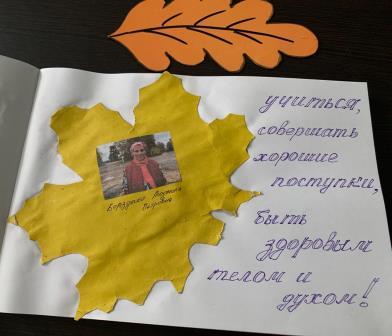 Людмила
Петровна
учиться,
совершать
хорошие
поступки,
быть
здоровым
телом и
духом!